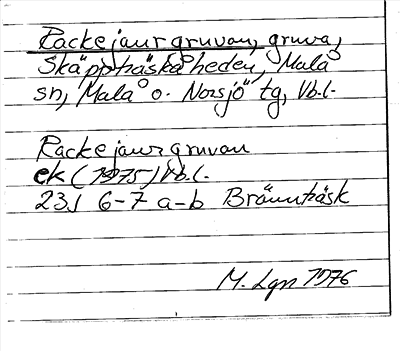 Rackejaurgruvan, gruva,
Skäppträskåheden, Malå
sn, Malå o. Norsjö tg, Vb.l.
Rackejaurgruvan
ek (1975) Vb.l.
23J 6-7 a-b Brännträsk
M. Lgn 1976